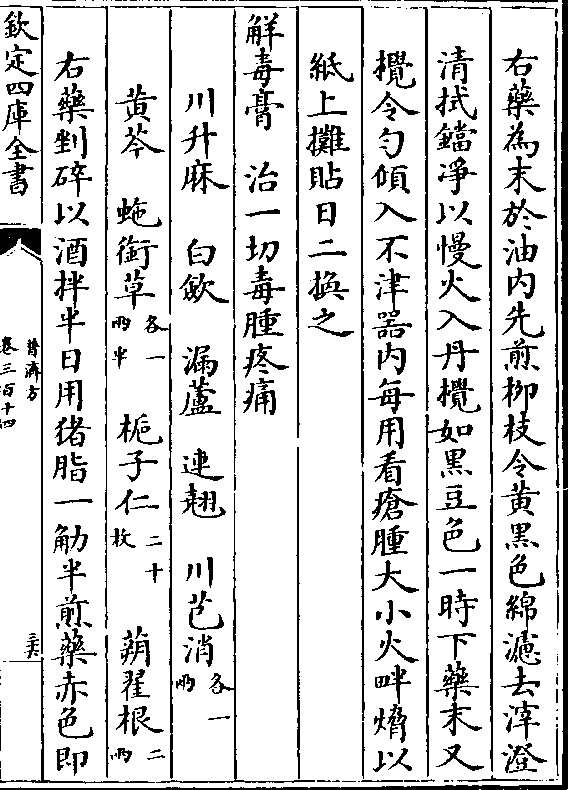 右藥為末於油内先煎栁枝令黄黒色綿濾去滓澄
清拭鐺凈以慢火入丹攪如黒豆色一時下藥末又
攪令匀傾入不津器内每用看瘡腫大小火畔㸐以
紙上攤貼日二換之
解毒膏　治一切毒腫疼痛
川升麻　白歛　漏蘆　連翹　川芒消各一兩
黄芩　虵銜草各一兩半　梔子仁二十枚　蒴翟根二兩
右藥剉碎以酒拌半日用猪脂一觔半煎藥赤色即
欽定四庫全書
普濟方
卷三百十四
三六